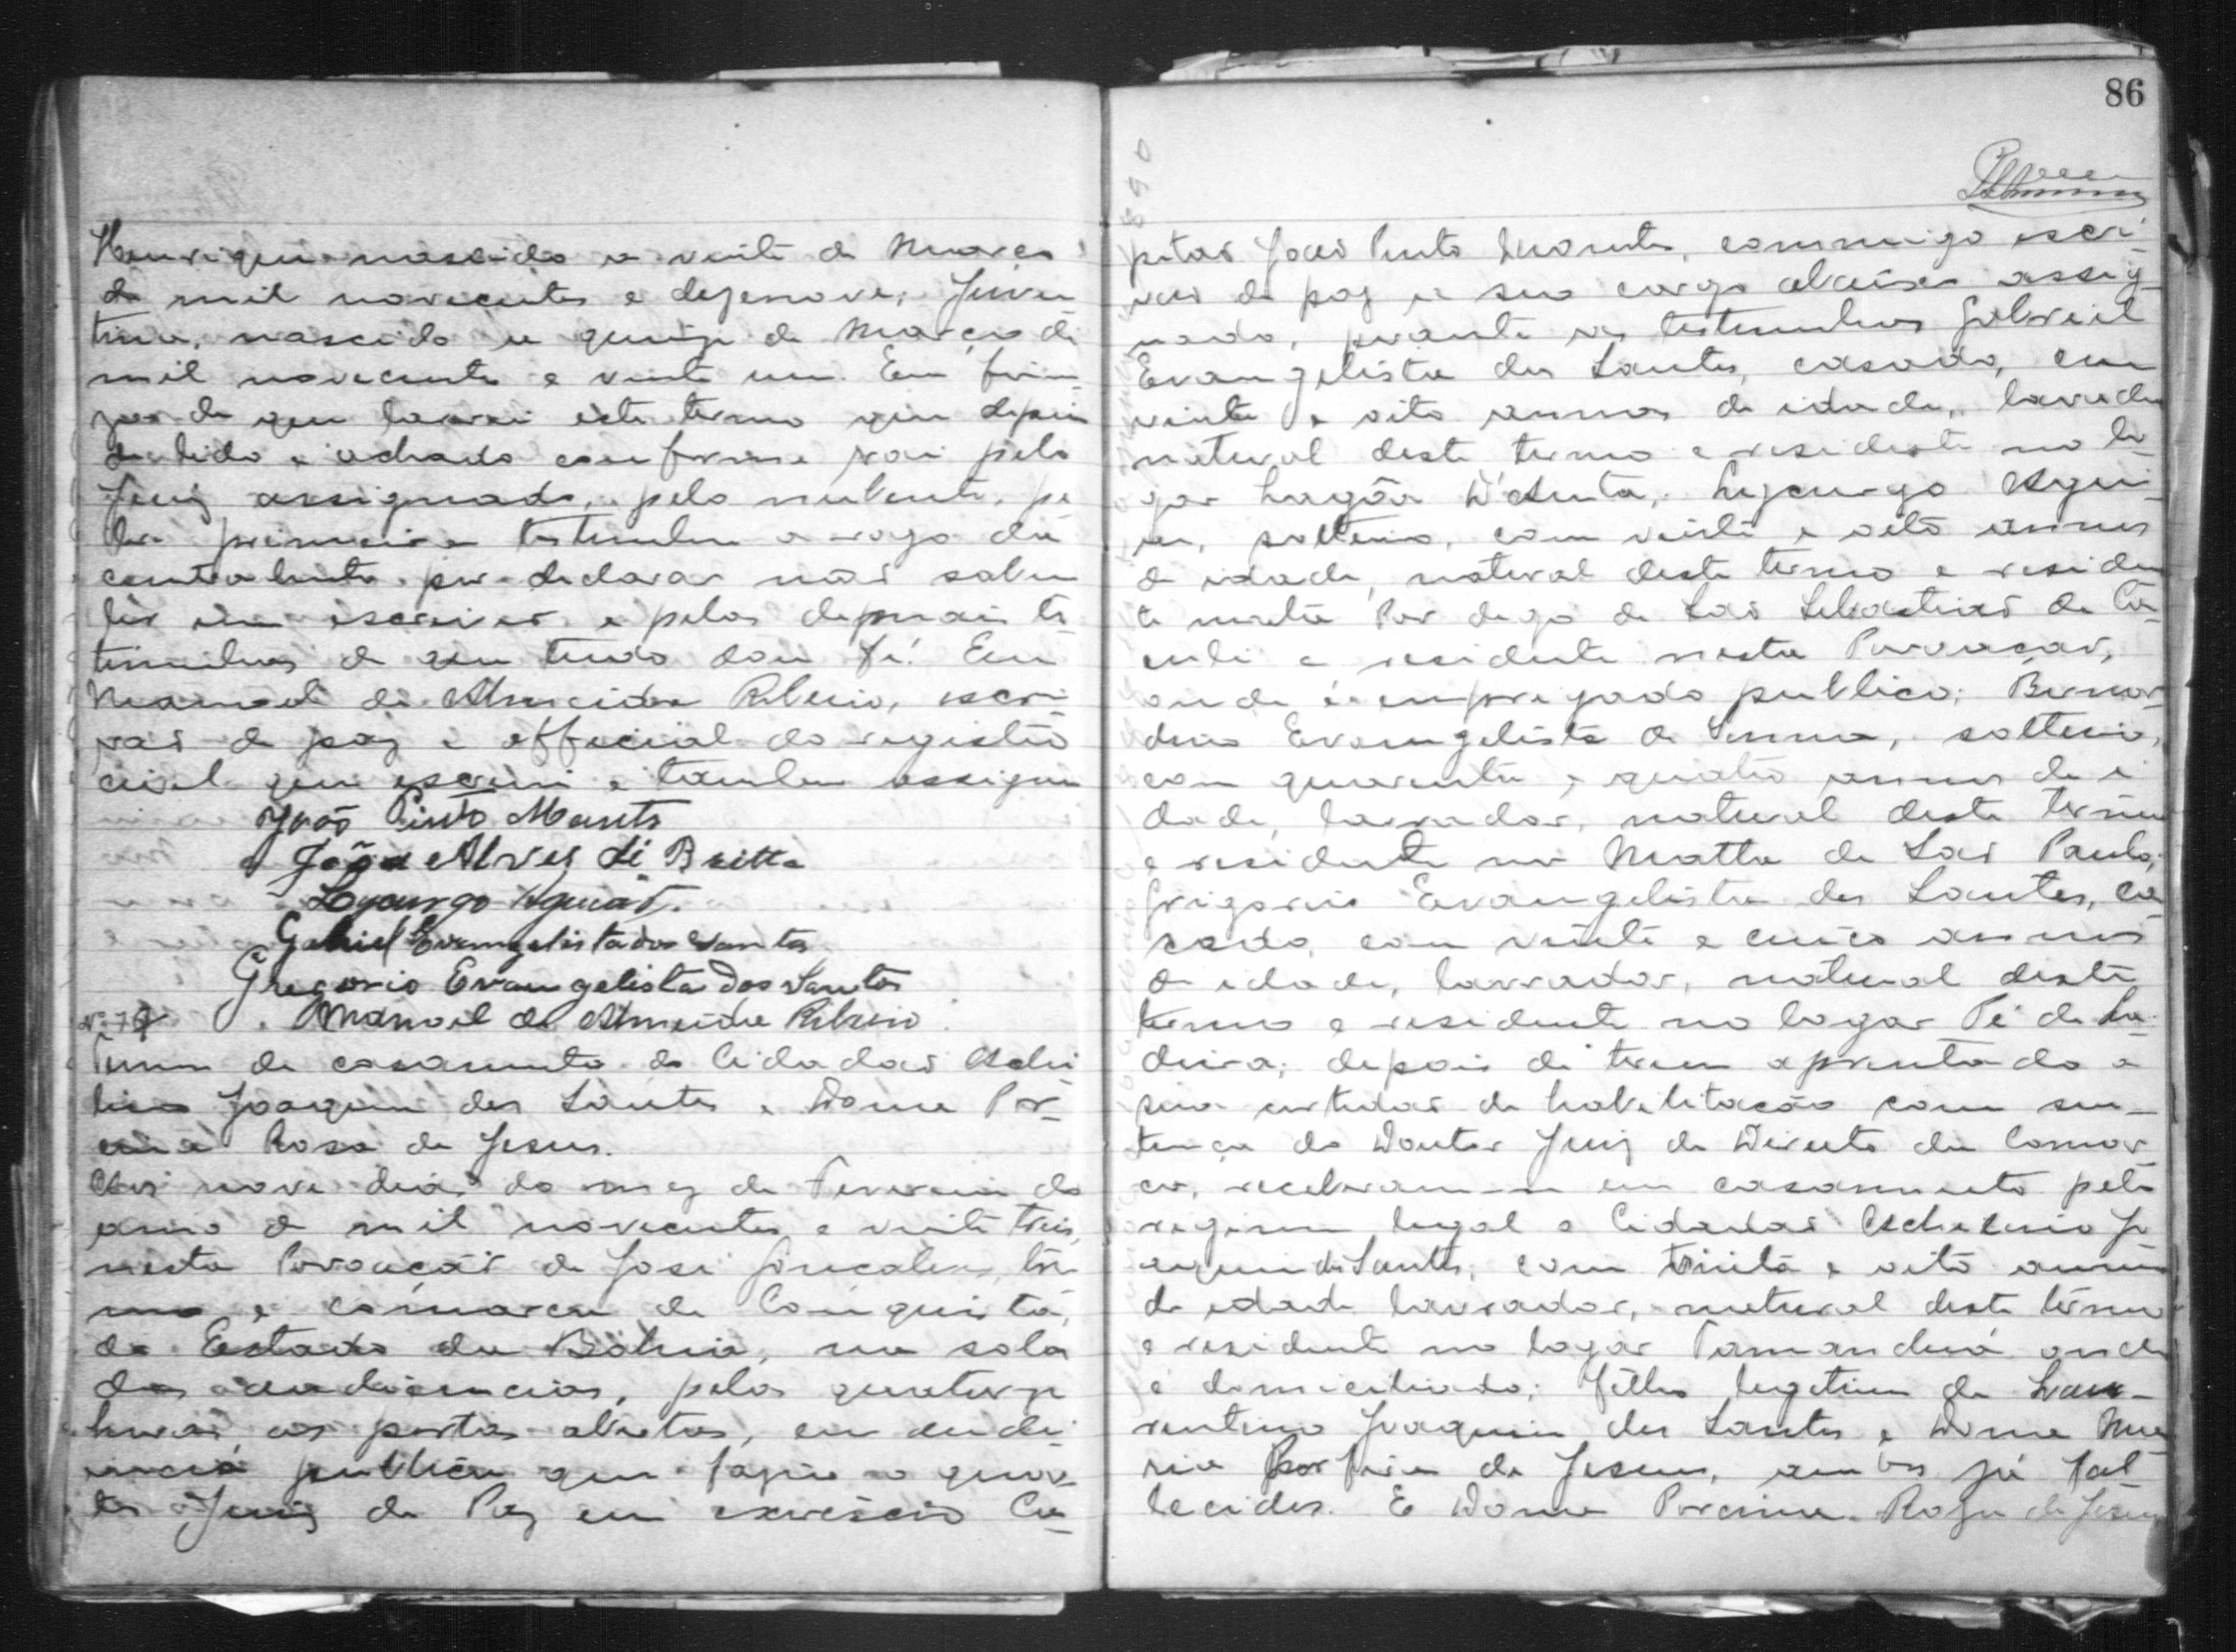 Henrique nascido a vinte de Março
de mil novecentos e dezenove; Juven
tino, nascido a quinze de Março de
mil novecentos e vinte um. Em firm
za de que lavrei este termo que depois
de lido e achado conforme vai pelo
Juiz assignado, pelo nubente, pe
la primeira testemunha a rogo da
contrahente por declarar não saber
ler nem escrever e pelas demais tes
temunhas de que tudo dou fé. Eu
Manoel de Almeida Ribeiro, escri
vão de paz e official do registro
civil que escrevi e tambem assigno
João Pinto Mants
João Alves de Britto
Lycurgo Aguiar.
Gabriel Evangelista dos Santos
Gregorio Evangelista dos Santos
Manoel de Almeida Ribeiro
Nº 7
Termo de casamento do Cidadão
Joaquim dos Santos e Dona Por
cina Rosa de Jesus.
Aos nove dias do mez de Fevereiro do
anno de mil novecentos e vinte tres,
nesta Povoação de José Gonçalves, ter
mo e comarca de Conquista,
do Estado da Bahia, na sala
das audiencias, pelas quatorze
horas as portas abertas, em audi
encia publica que fazia o quar
to Juiz de Paz em exercicio Ca
86
pitão João Pinto Mants, commigo escri
vão de paz de seu cargo abaixo assig
nado, perante as testemunhas Gabriel
Evangelista dos Santos, casado, com
vinte e oito annos de idade, lavrador
natural deste termo e residente no lo
gar Lagôa D'Anta, Lycurgo Agui
ar, solteiro, com vinte e oito annos
de idade, natural deste termo e residen
te de São Sebastião de Ca
culé e residente nesta Povoação,
onde é empregado publico; Bernar
dino Evangelista de Senna, solteiro,
com quarenta e quatro annos de i
dade, lavrador, natural deste termo
e residente na Matta de São Paulo;
Grigorio Evangelista dos Santos, ca
sado, com vinte e cinco annos
de idade, lavrador, natural deste
termo e residente no logar Pé de La
deira; depois de terem apresentado a
sua certidão de habilitação com sen
tença do Doutor Juiz de Direito da Comar
ca, receberam-se em casamento pelo
regimen legal o Cidadão Jo
aquim dos Santos, com trinta e oito annos
de idade lavrador, natural deste termo
e residente no logar Tamanduá onde
é domiciliado; filho legitimo de Lau
rentino Joaquim dos Santos e Dona Ma
ria Porfiria de Jesus, ambos já fal
lecidos. E Dona Porcina Rosa de Jesus